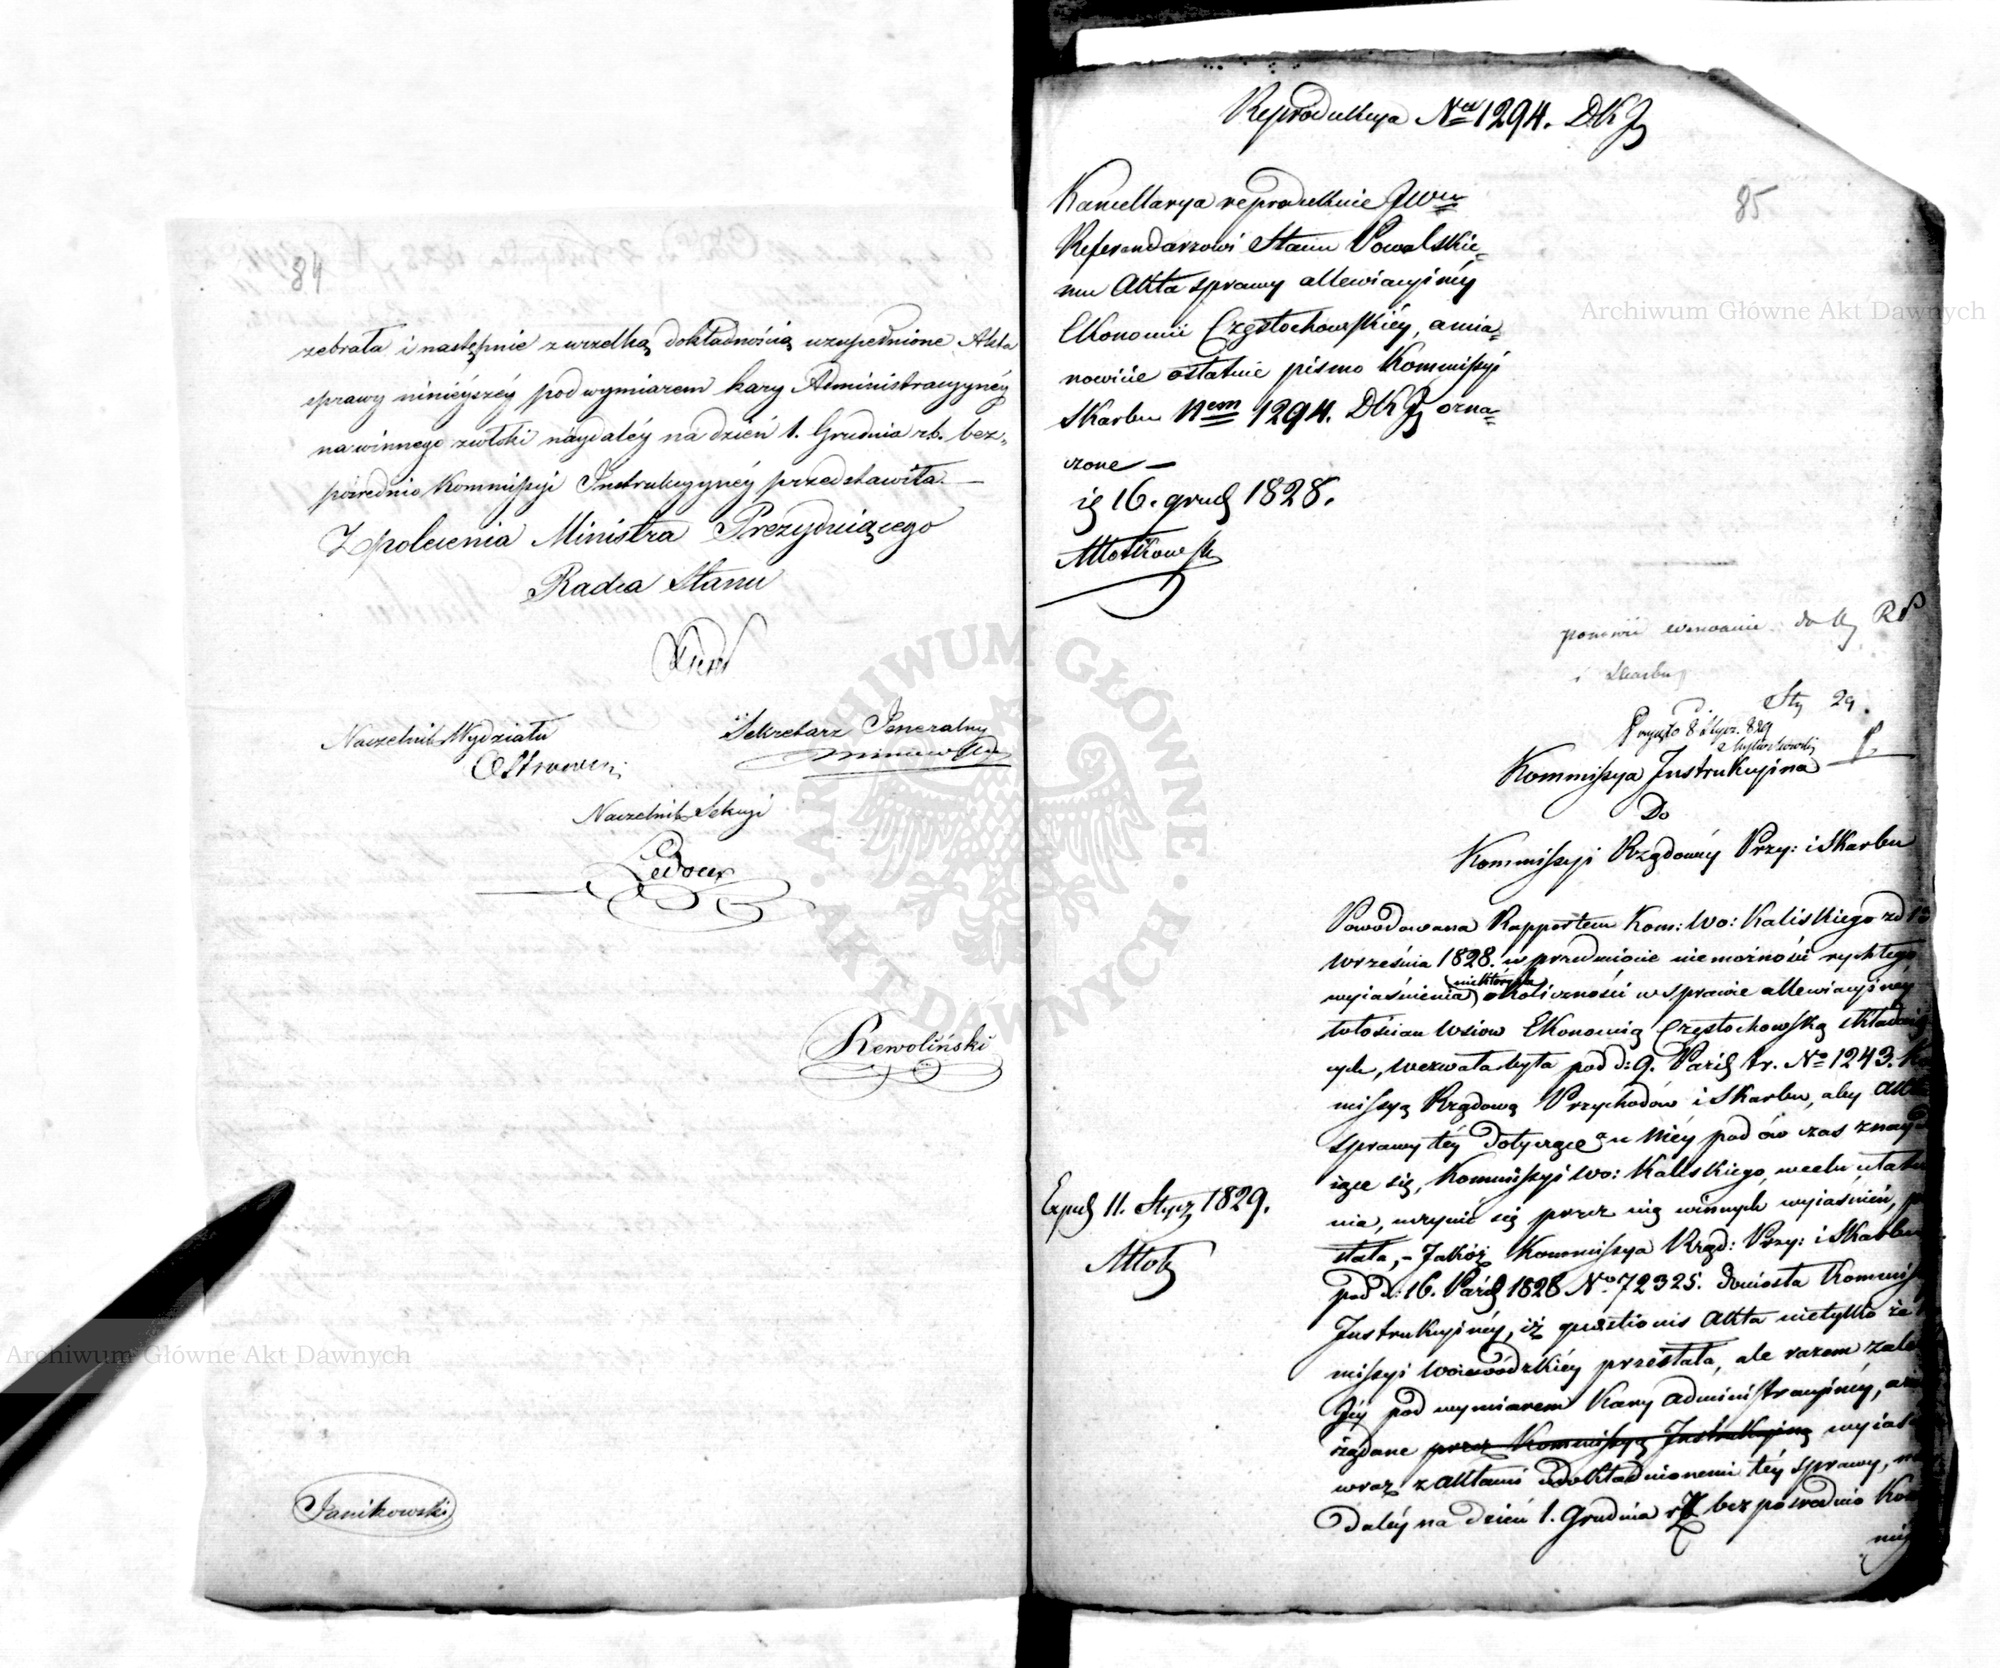 84
zebrała i następnie z wszelką dokładnością uzupełnione Akta
sprawy ninieyszéy pod wymiarem kary Administracyynéy
na winnego zwłoki naydaléy na dzień 1. Grudnia rb. bez-
pośrednio Kommissyi Instrukcyynéy przedstawiła. —
Z polecenia Ministra Prezyduiącego
Radca Stanu
Naczelnik Wydziału
Sekretarz Jeneralny
Naczelnik Sekcyi
Ledoux
Rewoliński
Janikowski
Reprodukcya Nra 1294. DKJ
85
Kancellarya reprodukuie JWu
Referendarzowi Stanu Powalskie-
mu Akta sprawy allewiacyinéy
Ekonomii Częstochowskiéy, a mia-
nowicie ostatnie pismo Kommissyi
Skarbu Nem 1294. DKJ ozna-
czone —
16. grud 1828.
ponowić wezwanie do K R P
i Skarbu
Sty 29.
8 Stycz. 829
Kommissya Instrukcyina
Do
Kommissyi Rządowéy Przy: i Skarbu
Powodowana Rapportem Kom: Wo: Kaliskiego z d 13
Września 1828. w przedmiocie niemożności rychłego
wyiaśnienia niektórych okoliczności w sprawie allewiacyinéy
włościan Wsiow Ekonomią Częstochowską składaią
cych, wezwała była pod d: 9. Paźd t.r. No 1243. Ko
missyą Rządową Przychodów i Skarbu, aby Akta
sprawy téy dotyczące a u niéy pod ów czas znayd
iące się, Kommissyi Wo: Kaliskiego, w celu ułatw
nia, uczynić się przez nią winnych wyiaśnień, p
słała, – Jakoż Kommissya Rząd: Przy: i Skarbu
pod d: 16. Paźd 1828 No 72325. doniosła Kommis
Instrukcyinéy, iż quaestionis Akta nietylko że
missyi Woiewódzkiéy przesłała, ale razem zale
Jéy pod wymiarem Kary administracyinéy, a
żądane przez Kommissyą Instrukcyiną wyiaś
wraz z Aktami udokładnionemi téy sprawy, na
daléy na dzień 1. Grudnia r bezpośrednio Kom
mis
Exped 11. Stycz 1829.